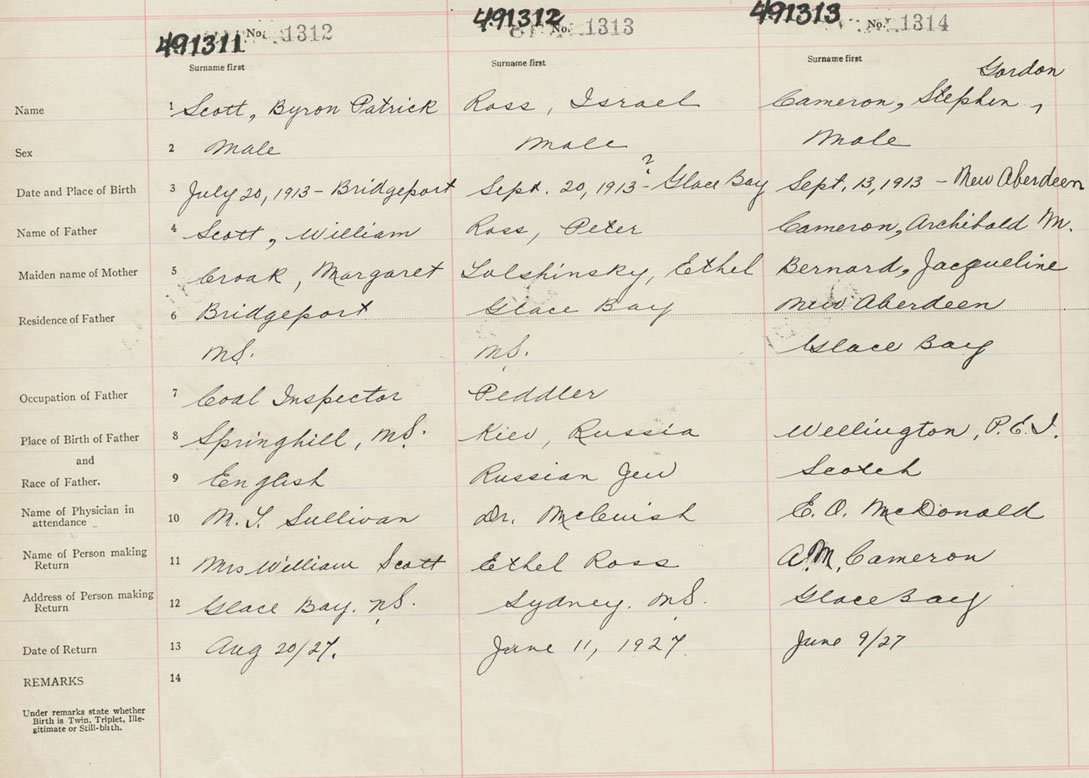 491311 No. 1312 491312 No. 1313 491313 No. 1314
Surname first Surname first Surname first
Gordon
Name 1 Scott, Byron Patrick Ross, Israel Cameron, Stephen,
Sex 2 Male Male Male
?
Date and Place of Birth 3 July 20, 1913 - Bridgeport Sept. 20, 1913 - Glace Bay Sept. 13, 1913 - New Aberdeen
Name of Father 4 Scott, William Ross, Peter Cameron, Archibald M.
Maiden name of Mother 5 Croak, Margaret Ethel Bernard, Jacqueline
Residence of Father 6 Bridgeport Glace Bay New Aberdeen
N.S. N.S. Glace Bay
Occupation of Father 7 Coal Inspector Peddler
Place of Birth of Father 8 Springhill, N.S. Kiev, Russia Wellington, P.E.I.
and
Race of Father. 9 English Russian Jew Scotch
Name of Physician in
attendance 10 M. T. Sullivan Dr. McCuish E. O. McDonald
Name of Person making
Return 11 Mrs William Scott Ethel Ross A.M. Cameron
Address of Person making
Return 12 Glace Bay. N.S. Sydney. N.S. Glace Bay
Date of Return 13 Aug 20/27. June 11, 1927 June 9/27
REMARKS 14
Under remarks state whether
Birth is Twin, Triplet, Ille-
gitimate or Still-birth.